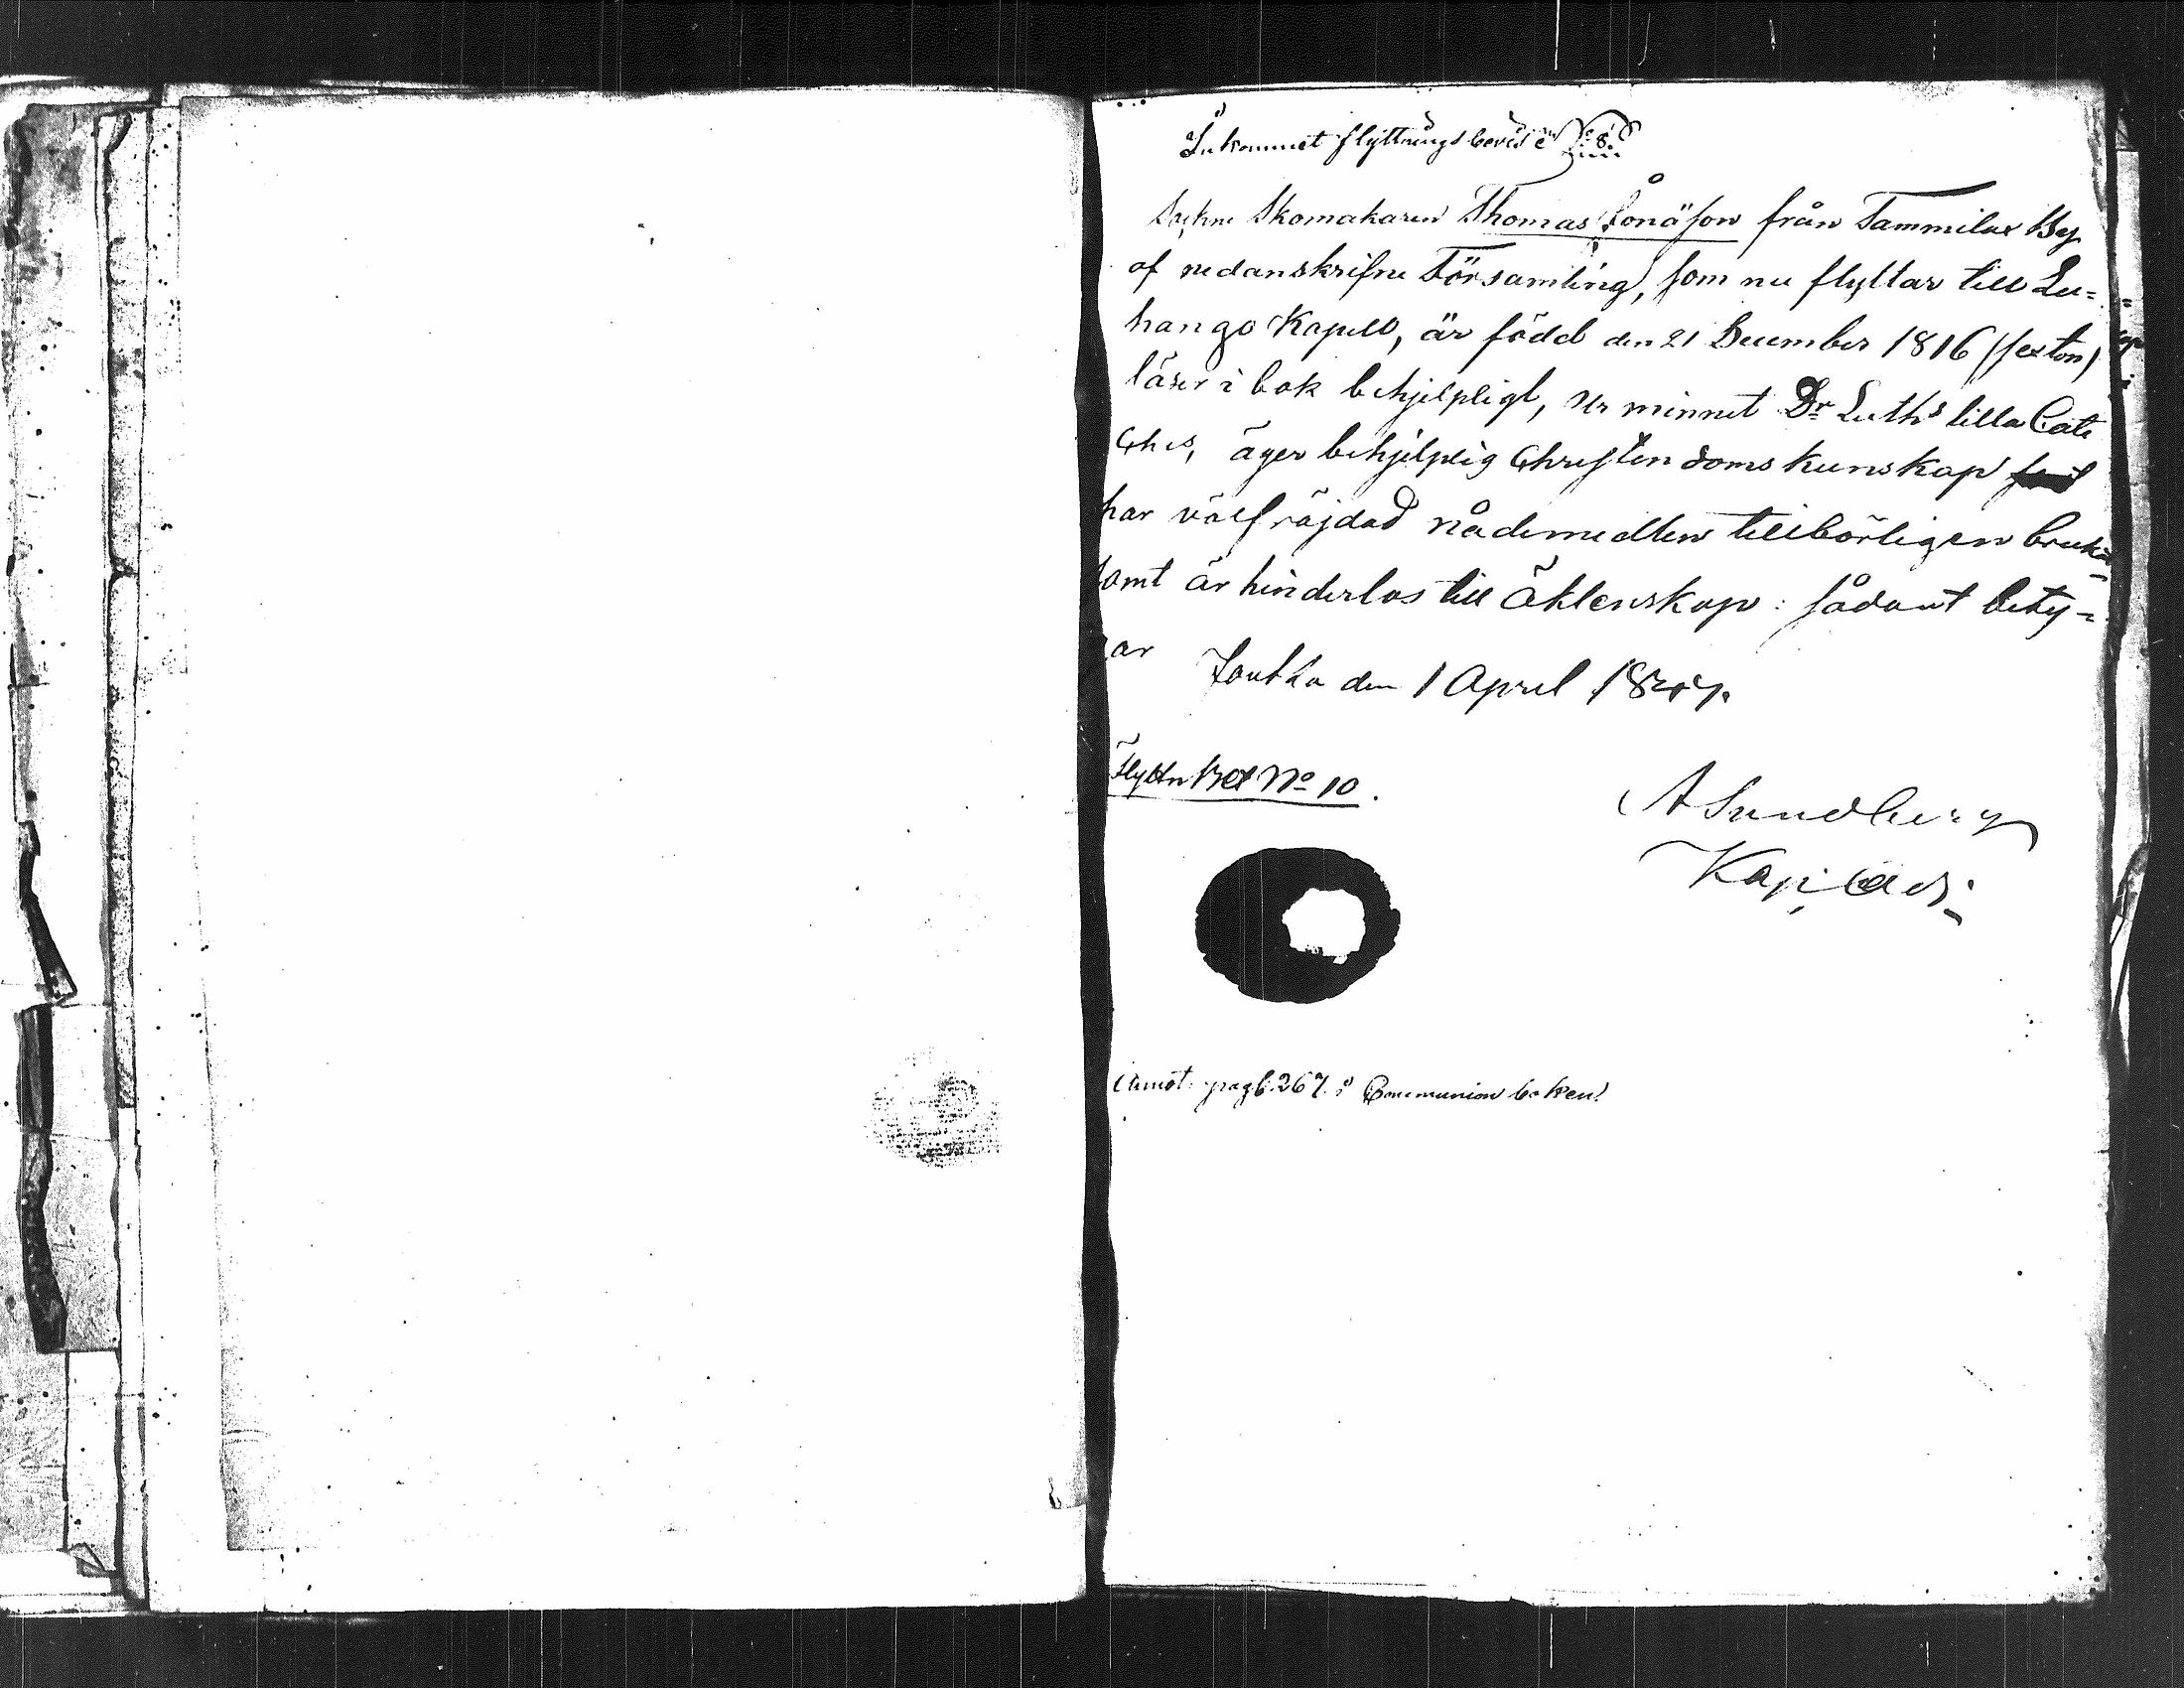 Inkommet flyttningsbevis N 8.
Sockne Skomakaren Thomas Jonäson från Tammilax By
af nedanskrifne Församling, som nu flyttar till Lu=
hango Kapell, är född den 21 December 1816 (sexton)
läser i bok behjelpligt, Ur minnet Dr Luths lilla Cate
ches, äger behjelplig Christendoms kunskap
har välfräjdad nådemedlen tillbörligen bruka
samt är hinderlös till äktenskap: sådant bety=
gar Joutsa den 1 April
Flyttn Bet No 10.
A Sundberg
Kap: Adj:
Annot: pag 267. i Communion boken.